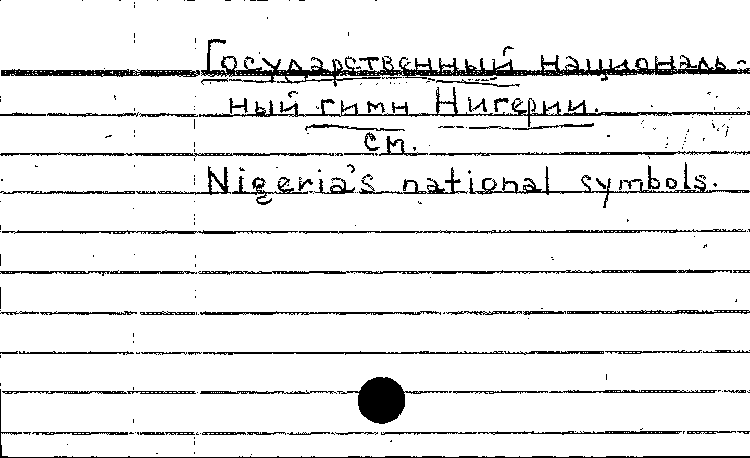 Государственный националь-
ный гимн Нигерии.
см.
Nigeria's national symbols.